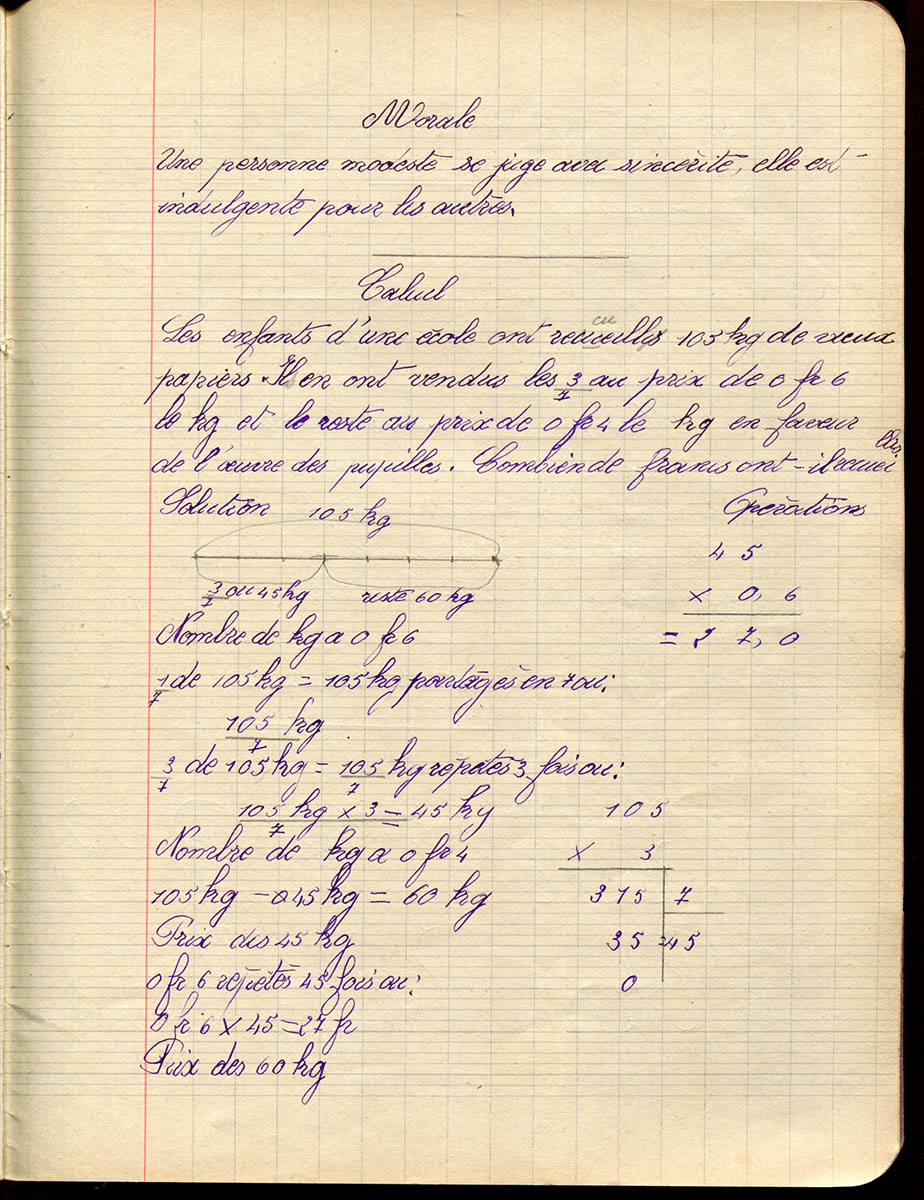 Morale
Une personne modeste se juge avec sincérité, elle est
indulgente pour les autres.
Calcul
Les enfants d'une école ont recueillis 105 kg de vieux
papiers. Ils en ont vendus les 3/7 au prix de 0 fr 6
le kg et le reste au prix de 0 fr 4 le kg en faveur
de l'œuvre des pupilles. Combien de francs ont-il recueillis.
Solution 105 kg Opérations
3/7 ou 45 kg reste 60 kg
4 5
× 0, 6
= 2 7, 0
Nombre de kg a 0 fr 6
1/7 de 105 kg = 105 kg partagés en 7 ou:
105 kg/7
3/7 de 105 kg = 105/7 kg répétés 3 fois ou:
105 kg × 3/7 = 45 kg
Nombre de kg a 0 fr 4
105 kg - 45 kg = 60 kg
Prix des 45 kg
0 fr 6 répétés 45 fois ou:
0 fr 6 × 45 = 27 fr
Prix des 60 kg
105
× 3
315 7
35 45
0